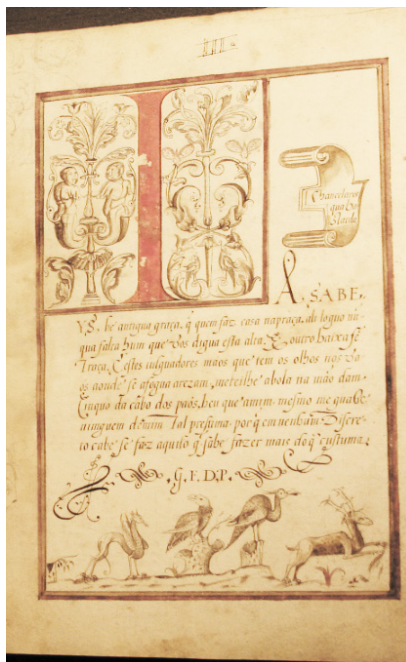 III.
I
Chancelaria
que ha
A SABE
Ys, he antigua graça, q̃ quem faz casa na praça, ahi logno nũ
qua falta hum que vos digua esta alta, E outro baixa, sẽ
Traça, E estes julguadores maos que tem os olhos nos va
os aonde se afogua arezam, meteilhe abola na mão dam
Cinquo da cabo dos paós, heu que amim mesmo me
ninguem demim tal presuma, por q̃ em nenhũm Discre
to cabe se faz aquilo q̃ sabe fazer mais do q̃ custuma.
.G.F.D.P.